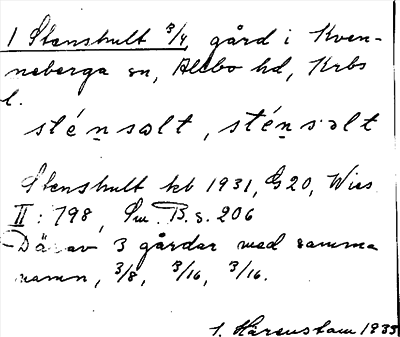 1 Stenshult 3/4 gård i Kven-
neberga sn, Allbo hd, Krbs
l.
sténsalt, sténsəlt
Stenshult kb 1931, G20, Wies
II: 798, Sm. B. s. 206
Därav 3 gårdar med samma
namn, 3/8, 3/16, 3/16.
1. Härenstam 1933